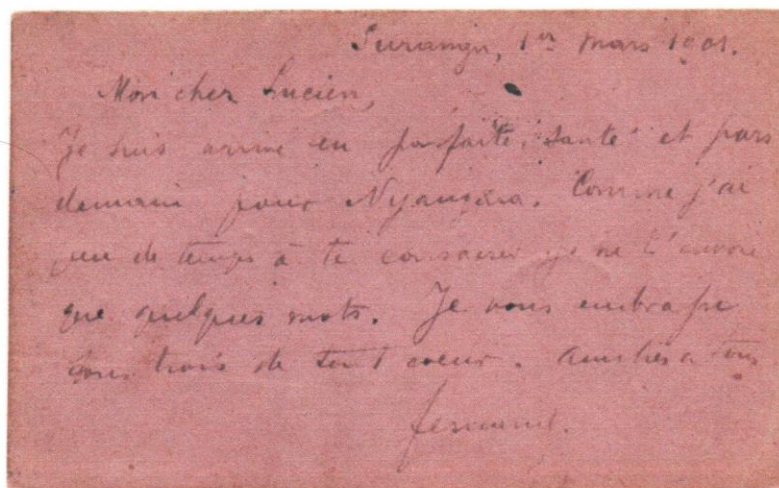 1er mars 1901.
Mon cher Lucien,
Je suis arrivé en parfaite santé et pars
demain pour Nyangara. Comme j'ai
peu de temps à te consacrer je ne t'envoie
que quelques mots. Je vous embrasse
tous trois de tout coeur. Amitiés à tous
fernand.